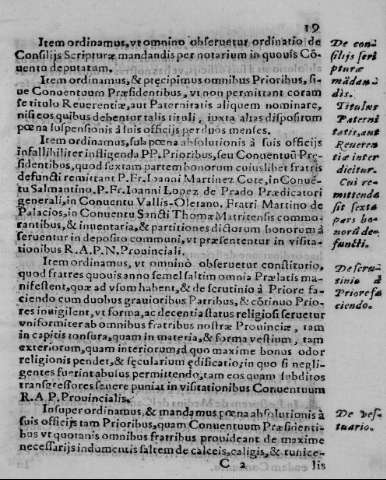 19
Item ordinamus, vt omnino obseruetur ordinatio de
Consilijs Scripturæ mandandis per notarium in quouis Cō-
uentu deputatam.
Item ordinamus, & præcipimus omnibus Prioribus, si-
ue Conuentuum Præsidentibus, vt non permittant coram
se titulo Reuerentiæ, aut Paternitatis aliquem nominare,
nisi eos quibus debentur talis tituli, iuxta alias dispositum
pœna suspensionis à suis officijs per duos menses.
Item ordinamus, sub pœna absolutionis à suis officijs
infallibiliter infligenda PP. Prioribus, seu Conuentuū Præ-
sidentibus, quod sextam partem bonorum cuiuslibet fratris
defuncti remittant P. Fr. Ioanni Martinez Cote, in Conuē-
tu Salmantino. P. Fr. Ioanni Lopez de Prado Prædicatori
generali, in Conuentu Vallis-Oletano. Fratri Martino de
Palacios, in Conuentu Sancti Thomæ Matritensis commo-
rantibus, & inuentaria, & partitiones dictorum bonorum à
seruentur in deposito communi, vt præsententur in visita-
tionibus R. A. P. N. Prouincialis.
Item ordinamus, vt omnino obseruetur constitutio,
quod fratres quouis anno semel saltim omnia Prælatis ma-
nifestent, quæ ad vsum habent, & de scrutinio à Priore fa-
ciendo cum duobus grauioribus Patribus, & cōtinuo Prio-
res inuigilent, vt forma, ac decentia status religiosi seruetur
vniformiter ab omnibus fratribus nostræ Prouinciæ, tam
in capitis tonsura, quam in materia, & forma vestium, tam
exteriorum, quam interiorum, à quo maxime bonus odor
religionis pendet, & sęcularium ędificatio, in quo si negli-
gentes fuerint abusus permittendo, tam eos quam subditos
transgressores seuere puniat in visitationibus Conuentuum
R. A. P. Prouincialis.
Insuper ordinamus, & mandamus pœna absolutionis à
suis officijs tam Prioribus, quam Conuentuum Præsidenti-
bus vt quotanis omnibus fratribus prouideant de maxime
necessarijs indumentis saltem de calceis, caligis, & tunice-
C 2 lis
De con-
silijs scri
pturæ
mādan-
dis.
Titulus
Paterni
tatis, aut
Reueren
tiæ inter
dicitur.
Cui re-
mittenda
sit sexta
pars bo-
norū de-
functi.
De scru-
tinio à
Priore fa
ciendo.
De ves-
tuario.